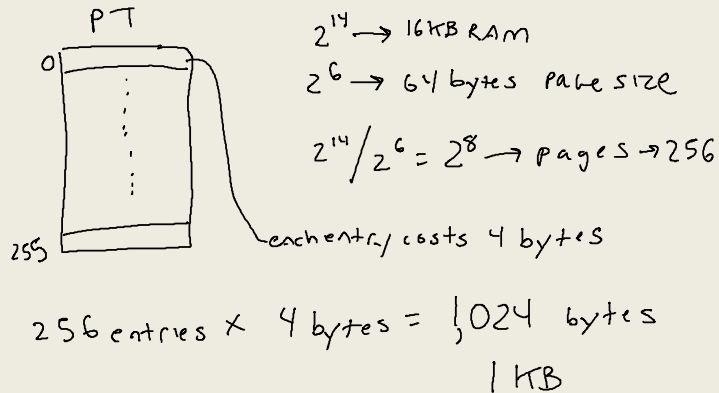 PT
0
255
2^14 → 16KB RAM
2^6 → 64 bytes page size
2^14/2^6 = 2^8 → pages → 256
each entry costs 4 bytes
256 entries × 4 bytes = 1,024 bytes
1 KB